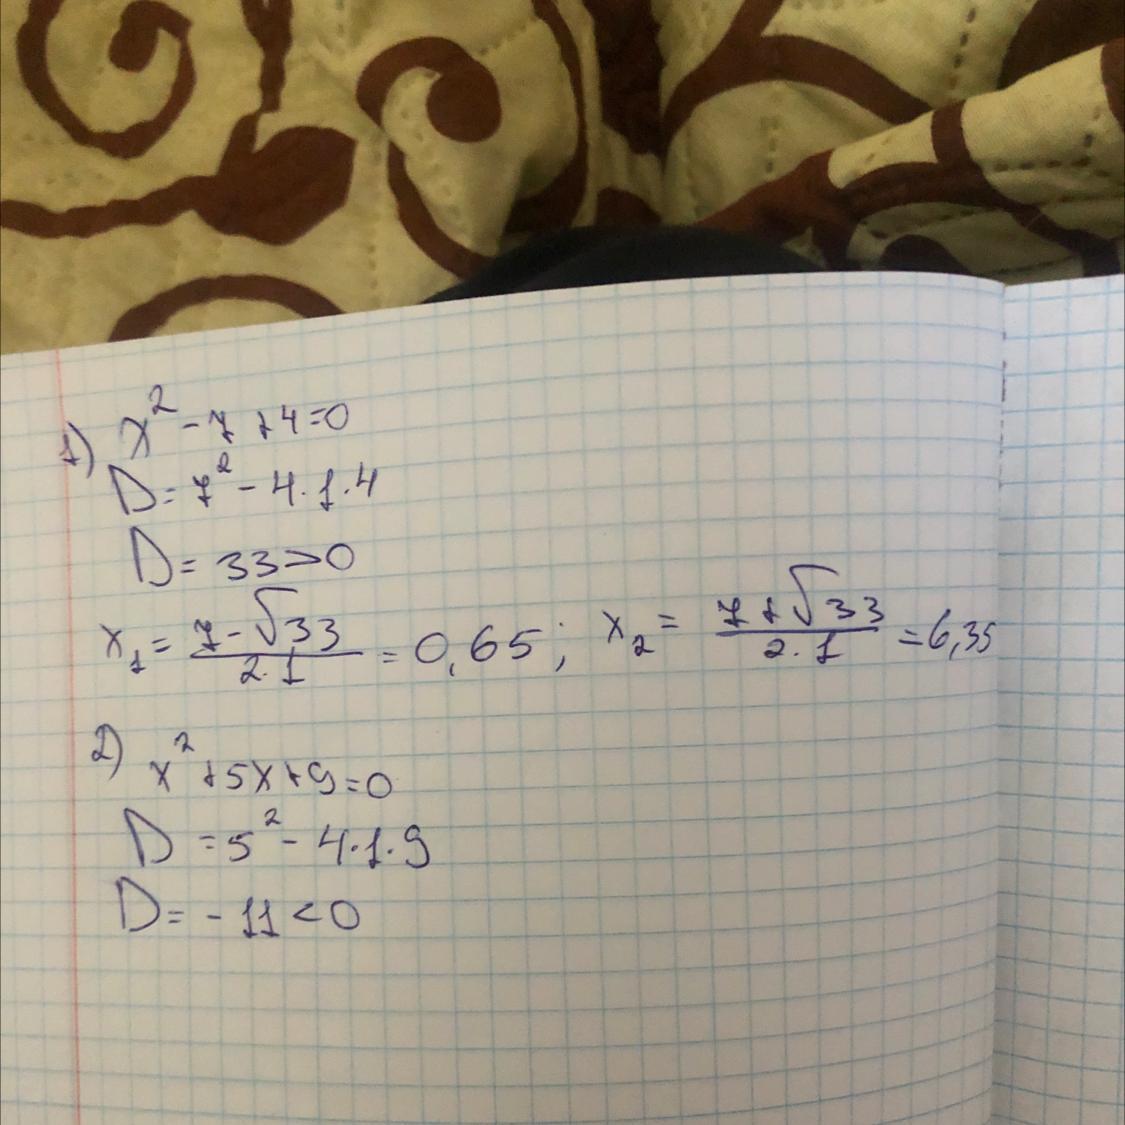 1) x² - 7 + 4 = 0
D = 7² - 4 · 1 · 4
D = 33 > 0
x₁ = (7 - √33)/(2 · 1) = 0,65; x₂ = (7 + √33)/(2 · 1) = 6,35
2) x² + 5x + 9 = 0
D = 5² - 4 · 1 · 9
D = - 11 < 0